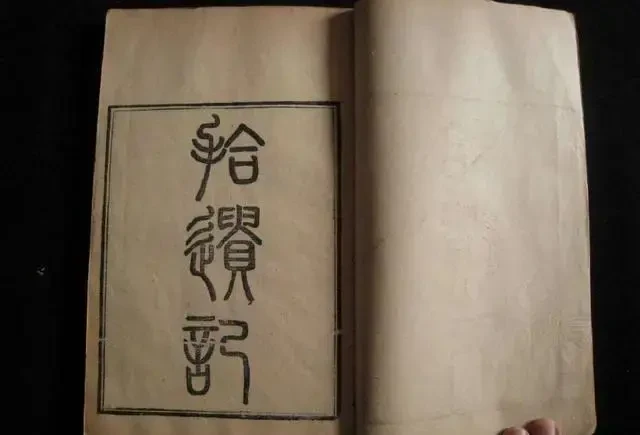 拾遺記